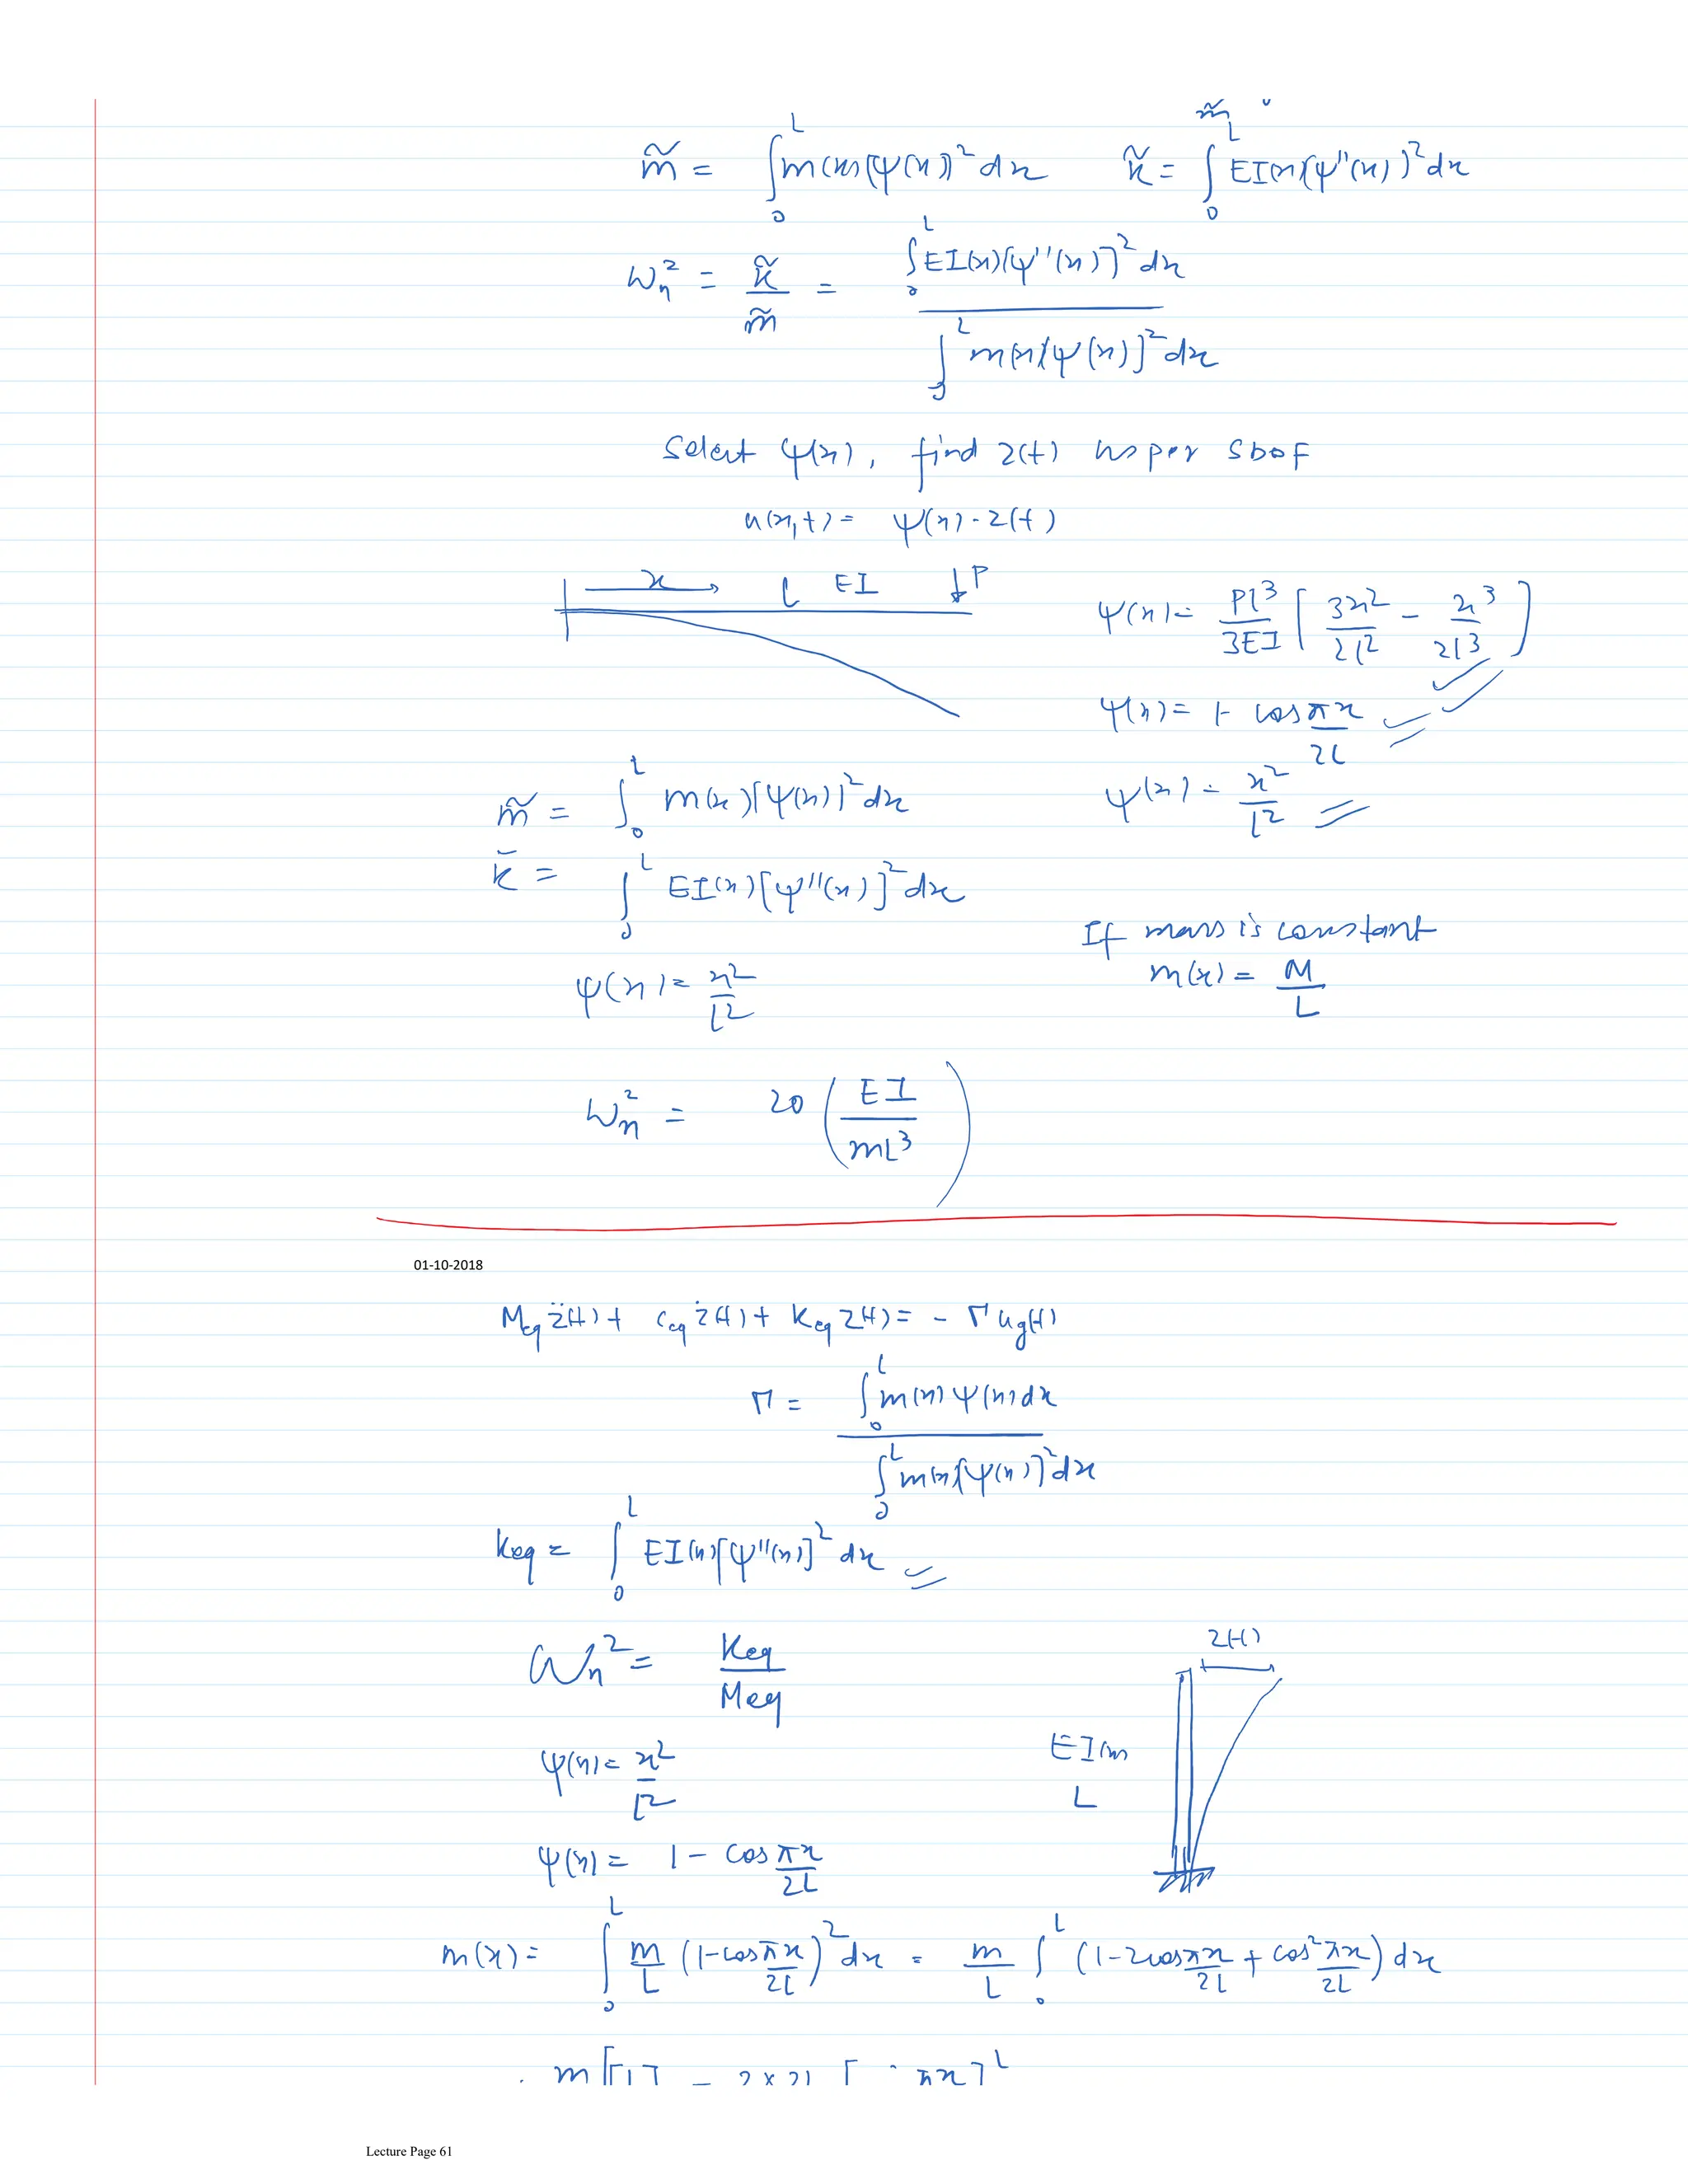 m̃
m̃ = ∫₀ᴸ m(x)(ψ(x))² dx    k̃ = ∫₀ᴸ EI(x)(ψ''(x))² dx
ωₙ² = k̃/m̃ = ∫₀ᴸ EI(x)[ψ''(x)]² dx / ∫₀ᴸ m(x)[ψ(x)]² dx
Select ψ(x), find z(t) as per SDOF
u(x,t) = ψ(x)·z(t)
x L EI ↓P
ψ(x) = PL³/3EI [3x²/2L² - x³/2L³]
ψ(x) = 1- cos πx/2L
ψ(x) = x²/L²
m̃ = ∫₀ᴸ m(x)[ψ(x)]² dx
k̃ = ∫₀ᴸ EI(x)[ψ''(x)]² dx
If mass is constant
m(x) = M/L
ψ(x) = x²/L²
ωₙ² = 20 (EI/mL³)
01-10-2018
Meq z̈(t) + Ceq ż(t) + Keq z(t) = - Γ ug(t)
Γ = ∫₀ᴸ m(x) ψ(x) dx / ∫₀ᴸ m(x)[ψ(x)]² dx
Keq = ∫₀ᴸ EI(x)[ψ''(x)]² dx
ωₙ² = Keq/Meq
z(t)
EI, m
L
ψ(x) = x²/L²
ψ(x) = 1 - cos πx/2L
m(x) = ∫₀ᴸ m/L (1-cos πx/2L)² dx = m/L ∫₀ᴸ (1-2cos πx/2L + cos² πx/2L) dx
Lecture Page 61